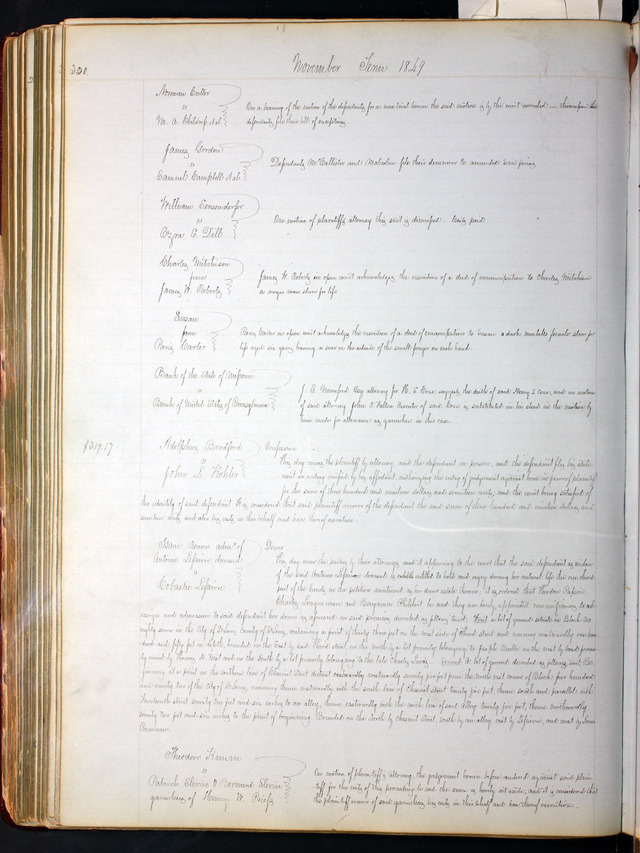 350.
November Term 1849
Norman Cutler
vs
M. A.
On a hearing of the motion of the defendants for a new trial herein the said motion is by the court overruled — thereupon the
defendants file their bill of exceptions
James Gordon
vs
Samuel Campbell et al
Defendants McCallister and Malcolm file their demurrer to amended
William
vs
Ezra C. Dill
On motion of plaintiffs attorney this suit is dismissed. Costs paid
Charles Mitchison
from
James H. Roberts
James H. Roberts in open court acknowledges the execution of a deed of emancipation to Charles Mitchison
a negro man slave for life
Susan
from
Paris Carter
Paris Carter in open court acknowledges the execution of a deed of emancipation to Susan a dark mulatto female slave for
life aged six years having a scar on the outside of the small finger on each hand.
Bank of the State of Missouri
vs
Bank of United States of Pennsylvania
Esq attorney for H. S. Coxe suggests the death of said Henry S Coxe, and on motion
of said attorney John O'Fallon Executor of said Coxe is substituted in his stead in the motion
made for allowance as garnishee in this case.
$319.17
Adolphus Bradford
John L. Kohler
Confession
This day came the plaintiff by attorney and the defendant in person, and the defendant files his state-
ment in writing verified by his affidavit, authorizing the entry of judgment against him in favor of plaintiff
for the sum of three hundred and nineteen dollars and seventeen cents; and the court being satisfied of
the identity of said defendant. It is considered that said plaintiff recover of the defendant the said sum of three hundred and nineteen dollars, and
seventeen cents, and also his costs in this behalf and have thereof execution.
admr. of
Antoine deceased
vs
Dower
This day came the parties by their attorneys and it appearing to the court that the said defendant as widow
of the said Antoine deceased is entitled to hold and enjoy during her natural life the one third
part of the lands in the petition mentioned as her dower estate therein, it is ordered that Theodore Papin,
Charles and Benjamin be and they are hereby appointed commissioners to ad-
measure to said defendant her dower as aforesaid in said premises described as follows to wit. First a lot of ground situate in Block No.
eighty seven in the City of St Louis County of St Louis, containing a front of thirty feet on the west side of Third street and running westwardly one hun-
dred and fifty feet in depth, bounded on the East by said Third street, on the north by a lot formerly belonging to
and on the South by a lot formerly belonging to the late Charles Second: A lot of ground described as follows to wit, Be-
ginning at a point on the southern line of Chesnut Street distant eastwardly seventy feet from the north east corner of Block four hundred
and ninety two of the City of St Louis, running thence eastwardly with the south line of Chesnut street twenty five feet, thence south and parallel with
Fourteenth street seventy two feet and six inches to an alley, thence westwardly with the north line of said alley twenty five feet, thence northwardly
seventy two feet and six inches to the point of beginning. Bounded on the North by Chesnut Street, south by an alley, east by and west by
Theodore
vs
Patrick Slevin & Bernard Slevin
garnishees of Henry W.
On motion of plaintiffs attorney the judgment herein before rendered against said plain-
tiff for the costs of this proceeding be and the same is hereby set aside, and it is considered that
the plaintiff recover of said garnishees his costs in this behalf and have thereof execution.